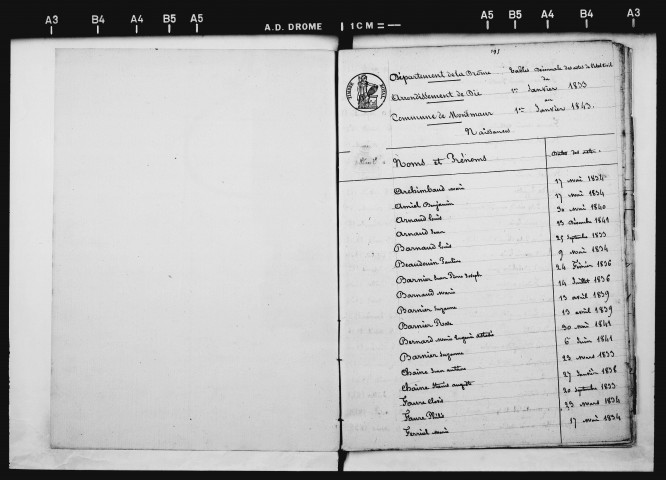 A3 B4 A4 B5 A5 A.D. DROME 1 CM = A5 B5 A4 B4 A3
Département de la Drôme
Arrondissement de Die
Commune de Montmaur
Tables Décennale des actes de l'état Civil
du
1er Janvier 1833
au
1er Janvier 1843.
Naissances
Noms et Prénoms Dates des actes
Archimbaud 17 mai 1834
Amiel Benjamin 17 mai 1834
Arnaud Louis 30 mai 1840
Arnaud Jean 13 décembre 1841
Barnaud Louis 25 septembre 1833
Beaudouin 9 mai 1834
Barnier Jean Pierre Joseph 24 février 1836
Barnaud Marie 14 Juillet 1836
Barnier Suzanne 13 avril 1839
Barnier Rose 13 avril 1839
Bernard Marie Eugénie 30 mai 1841
Barnier Suzanne 6 Juin 1841
Chaine Jean Antoine 23 mars 1833
Chaine auguste 27 Janvier 1836
Faure 20 septembre 1833
Faure 23 mars 1834
Ferrier 17 mai 1834